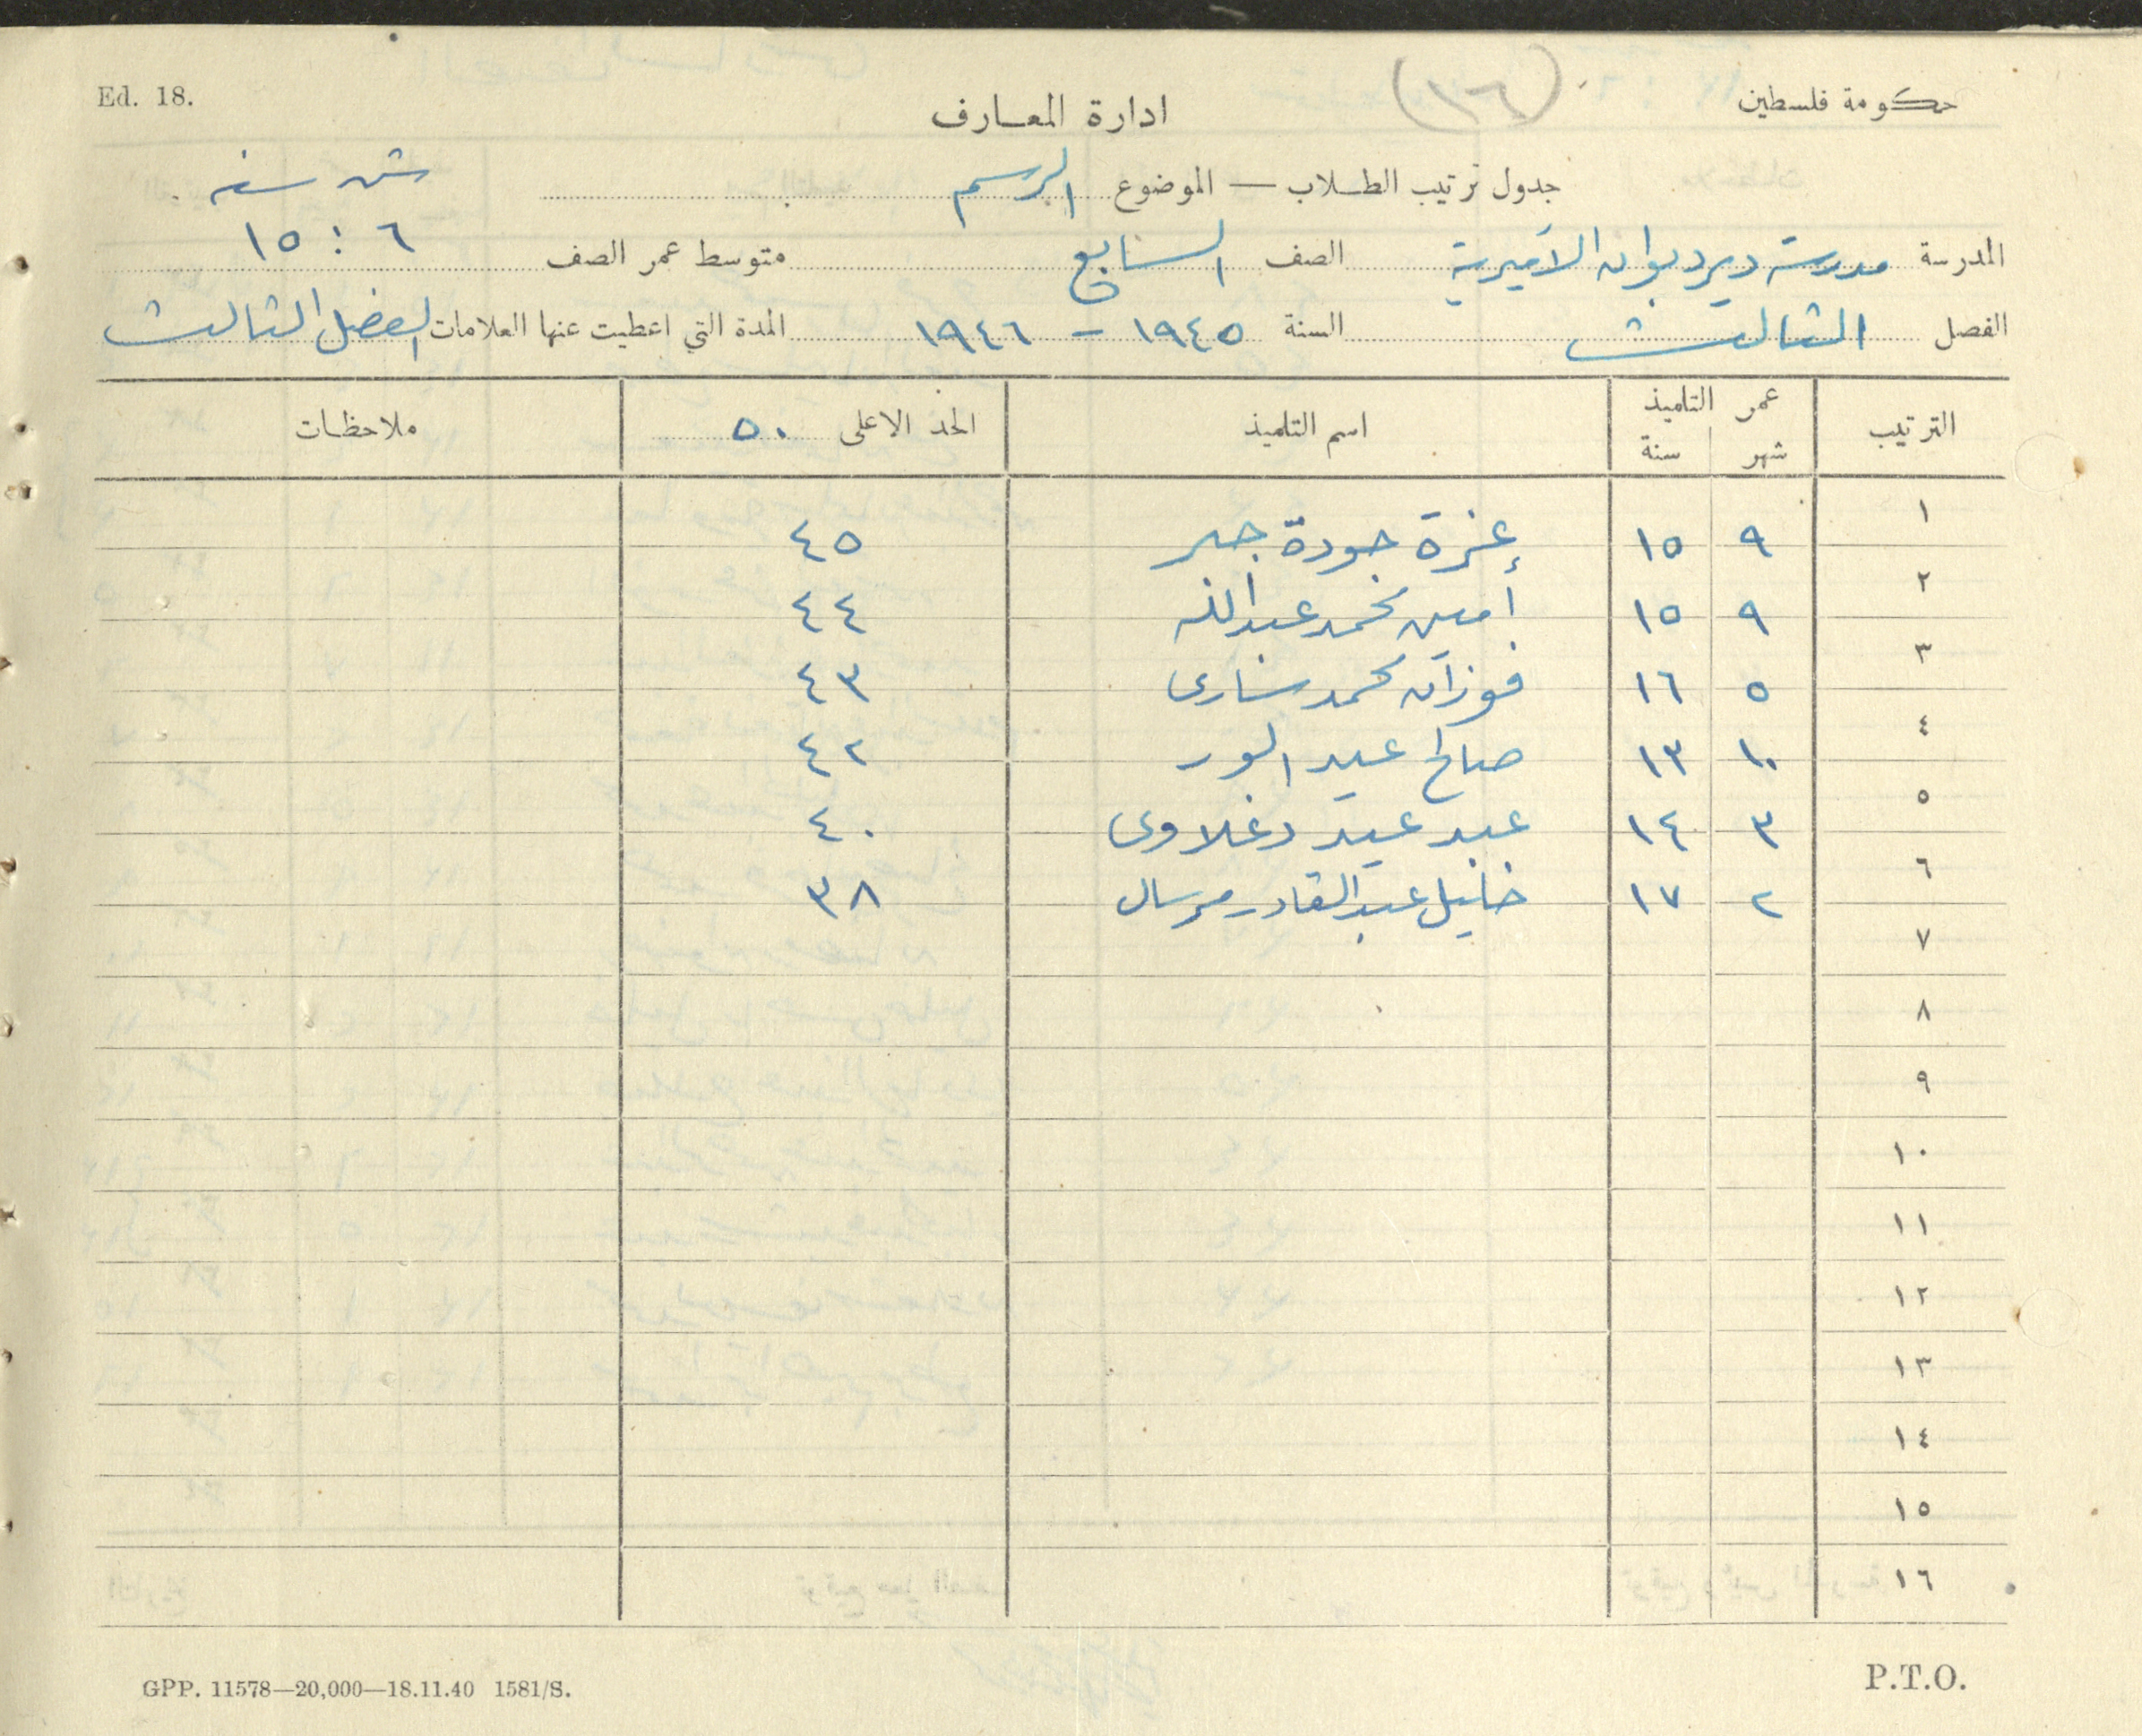 Ed. 18.
(١٦)
حكومة فلسطين
ادارة المعارف
جدول ترتيب الطلاب — الموضوع الرسم
شهر سنة
المدرسة مدرسة ديرديوان الأميرية الصف السابع متوسط عمر الصف ٦ : ١٥
الفصل الثالث السنة ١٩٤٥ - ١٩٤٦ المدة التي اعطيت عنها العلامات الفصل الثالث
الترتيب عمر التلميذ شهر سنة اسم التلميذ الحد الاعلى ٥٠ ملاحظات
١ ٩ ١٥ عزة جودة جبر ٤٥
٢ ٩ ١٥ أمين محمد عبدالله ٤٤
٣ ٥ ١٦ فوزان محمد ساري ٤٣
٤ ١٠ ١٣ صالح عيد ٤٢
٥ ٣ ١٤ عبد عيد دغلاوى ٤٠
٦ ٢ ١٧ خليل عبدالقادر مرسال ٣٨
٧
٨
٩
١٠
١١
١٢
١٣
١٤
١٥
١٦
GPP. 11578—20,000—18.11.40 1581/S.
P.T.O.